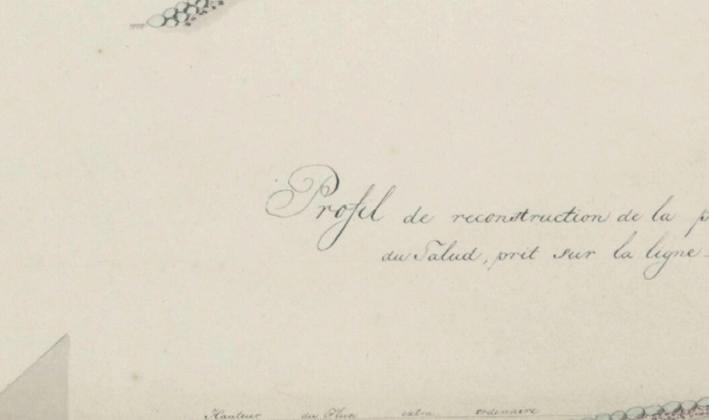 Profil de reconstruction de la p
du Salud, prit sur la ligne
Hauteur du Fluve extra ordenaire